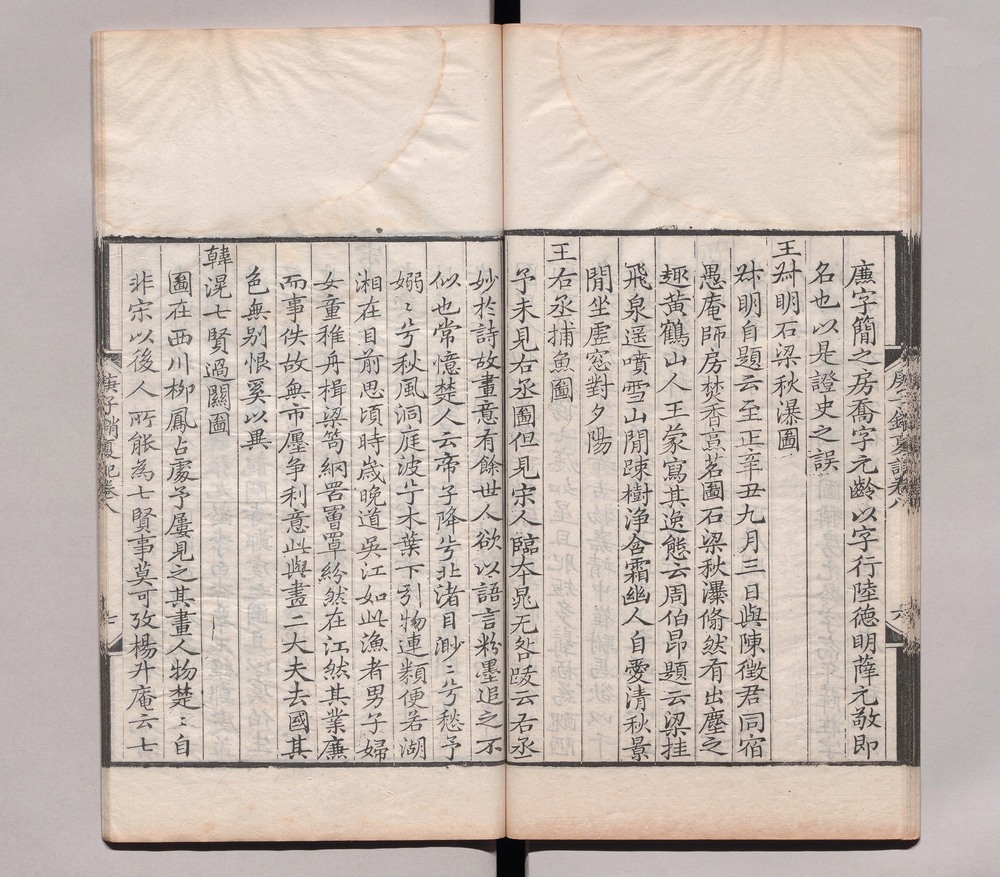 廡字簡之房喬字元齡以字行陸德明薛元敬即
名也以是證史之誤
王叔明石梁秋瀑圖
叔明自題云至正辛丑九月三日與陳徵君同宿
愚庵師房焚香煑茗圖石梁秋瀑翛然有出塵之
趣黃鶴山人王蒙寫其逸態云周伯昂題云梁挂
飛泉遥噴雪山閒踈樹浄含霜幽人自愛清秋景
閒坐虛窓對夕陽
王右丞捕魚圖
予未見右丞圖但見宋人臨夲晁无咎䟦云右丞
妙於詩故畫意有餘世人欲以語言粉墨追之不
似也常憶楚人云帝子降兮北渚目眇〻兮愁予
嫋〻兮秋風洞庭波兮木葉下引物連類便若湖
湘在目前思頃時歲晚道吳江如此漁者男子婦
女童稚舟楫梁笱網罟罾罩紛然在江然其業廉
而事佚故無市㕓争利意此與畫二大夫去國其
色無别恨奚以異
韓滉七賢過關圖
圖在西川柳鳳占處予屢見之其畫人物楚〻自
非宋以後人所能為七賢事莫可攷楊升庵云七
庚子銷夏記卷八
七
庚子銷夏記卷八
六